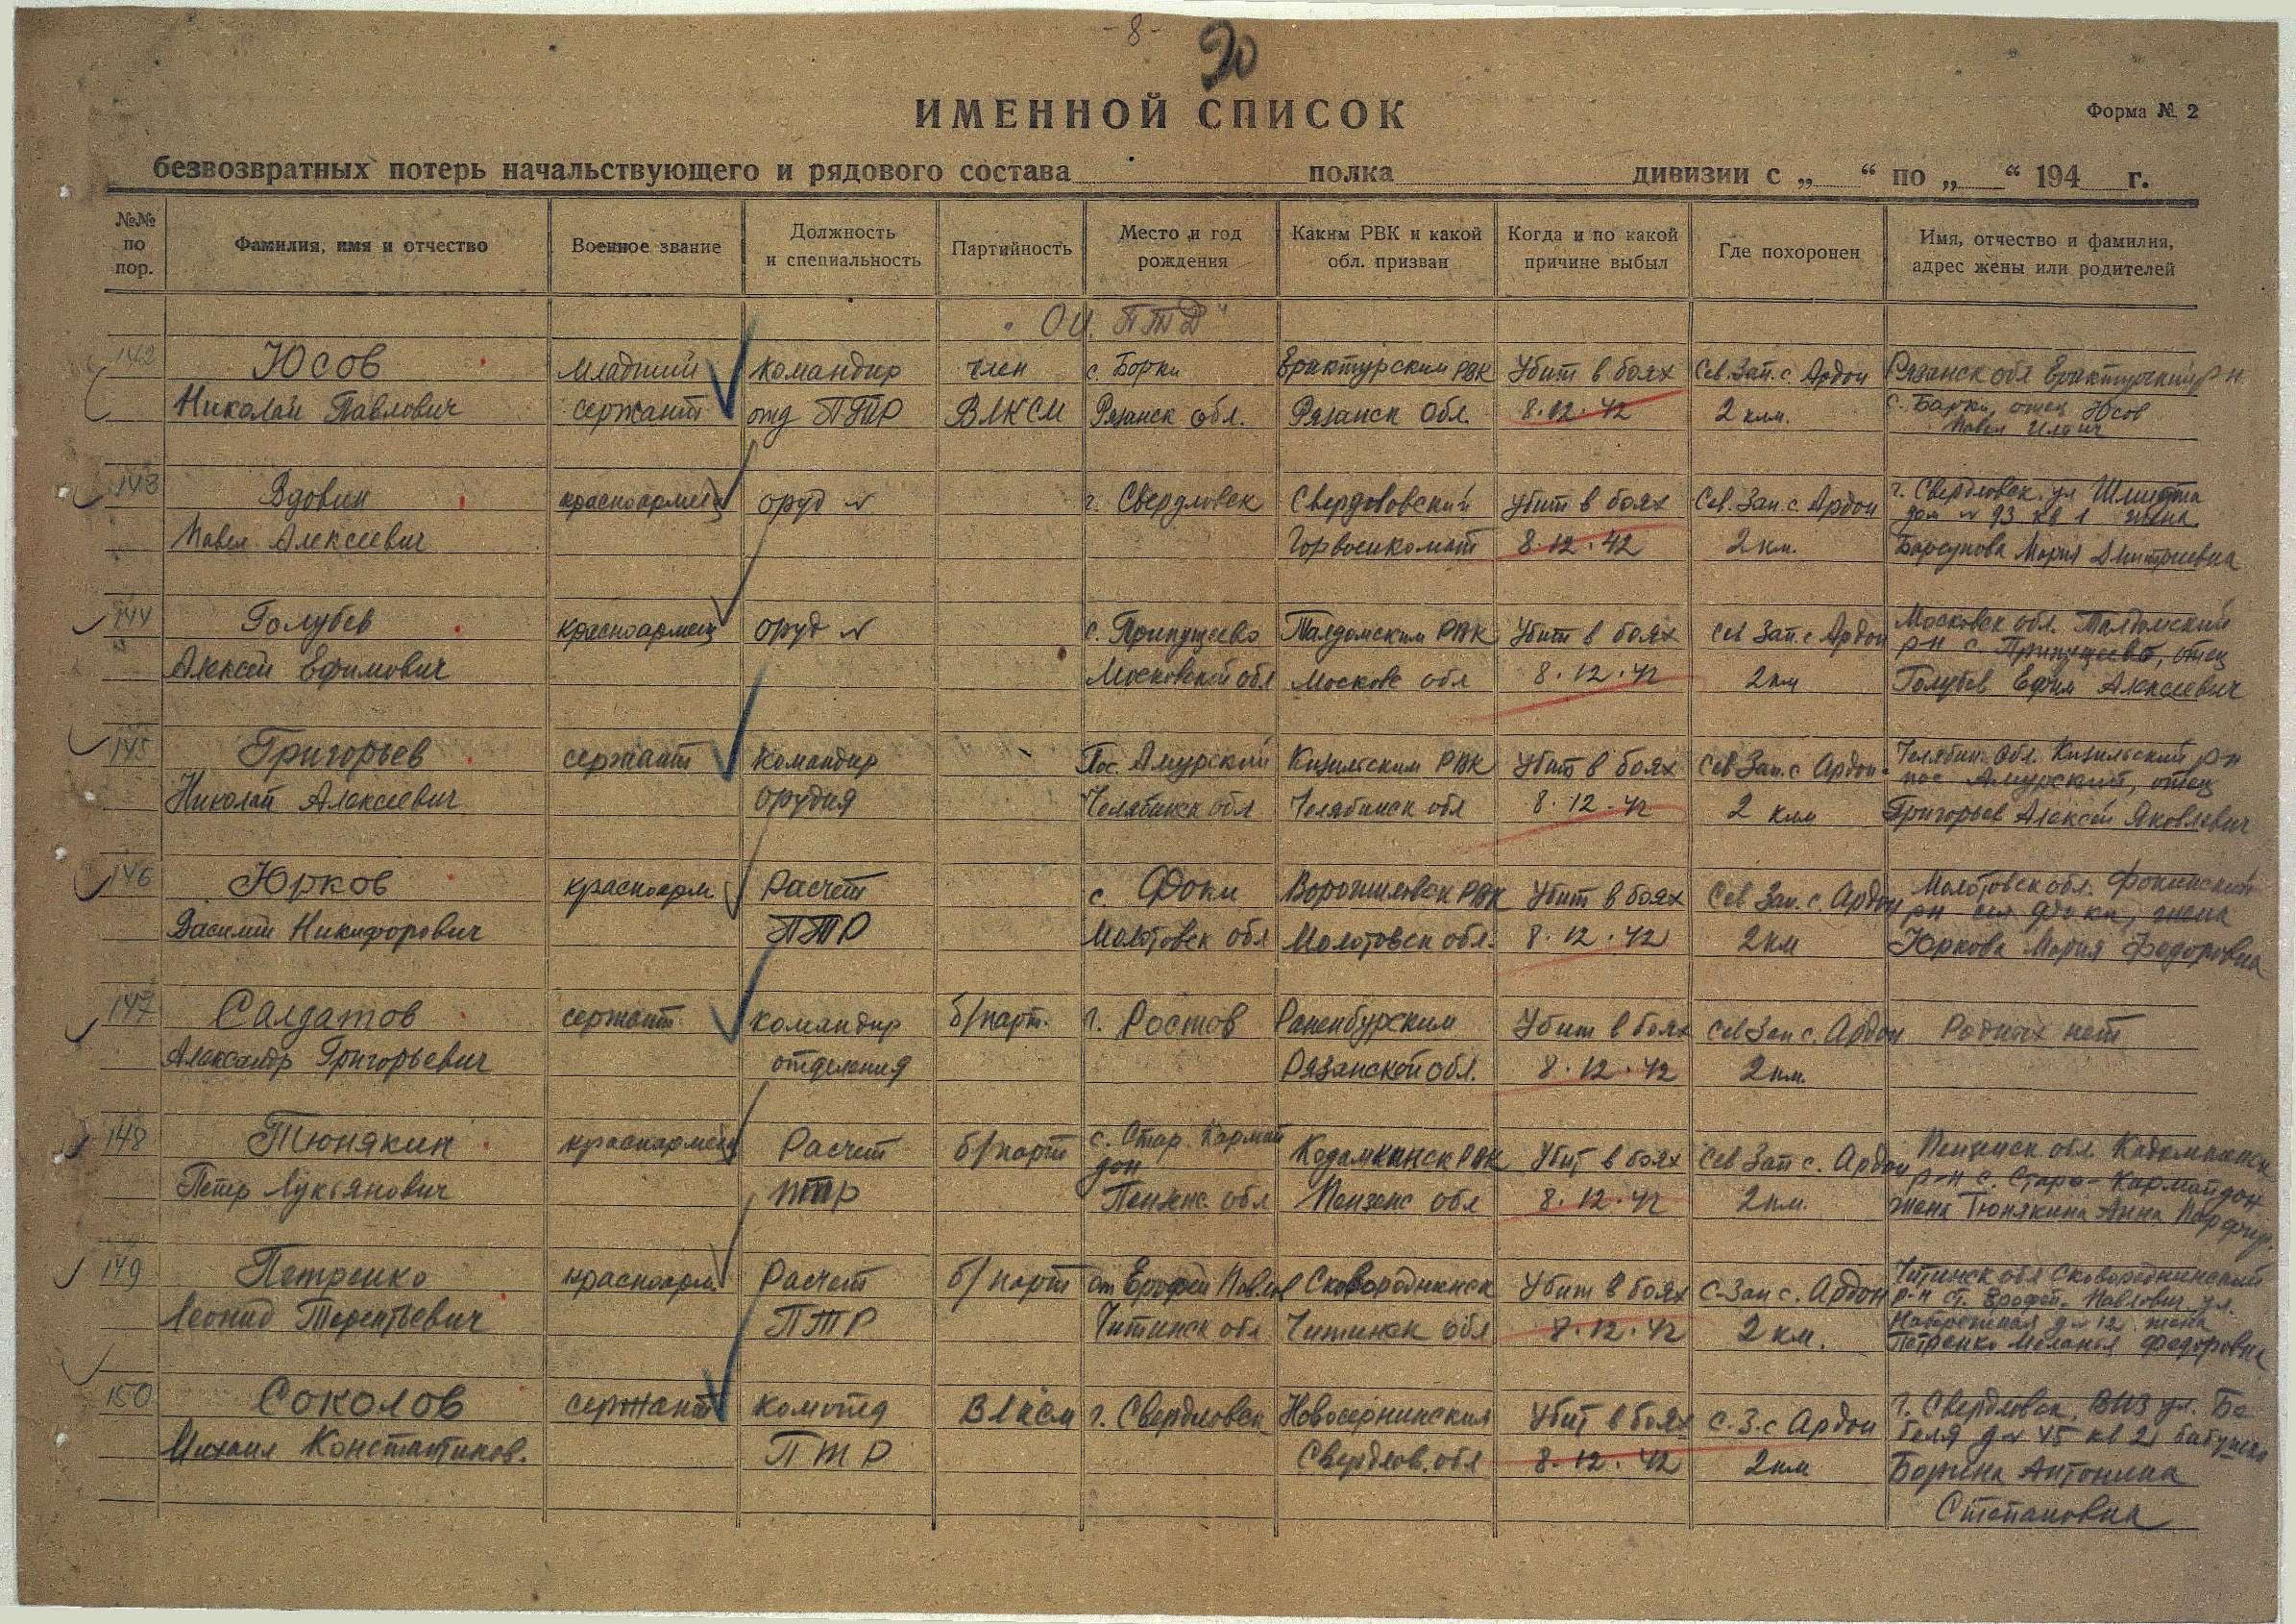 - 8 -
90
ИМЕННОЙ СПИСОК
Форма № 2
безвозвратных потерь начальствующего и рядового состава полка дивизии с „ “ по „ “ 194 г.
№№ по пор. Фамилия, имя и отчество Военное звание Должность и специальность Партийность Место и год рождения Каким РВК и какой обл. призван Когда и по какой причине выбыл Где похоронен Имя, отчество и фамилия, адрес жены или родителей
ПТД"
142 Юсов Младший командир член с. Борки Ерахтурским РВК Убит в боях Сев. Зап. с. Ардон Рязанск обл Ерахтурский р-н
Николай Павлович сержант отд ПТР ВЛКСМ Рязанск обл. Рязанск Обл. 8.12.42 2 клм. с. Борки, отец Юсов
Павел Ильич
143 Вдовин красноармеец оруд № г. Свердловск Свердловский Убит в боях Сев. Зап. с. Ардон г. Свердловск ул Шмидта
дом № 93 кв 1 жена
Павел Алексеевич Горвоенкомат 8.12.42 2 км. Барсукова Мария Дмитриевна
144 Голубев красноармеец оруд № с. Припущаево Талдомским РВК Убит в боях Сев Зап. с Ардон Московск обл. Талдомский
р-н с. Припущаево, отец
Алексей Ефимович Московской обл Московс обл 8.12.42 2 км Голубев Ефим Алексеевич
145 Григорьев сержант Командир Пос. Амурский Кизильским РВК Убит в боях Сев Зап. с Ардон Челябин. обл. Кизильский р-н
пос Амурский, отец
Николай Алексеевич орудия Челябинск обл Челябинск обл 8.12.42 2 клм Григорьев Алексей Яковлевич
146 Юрков красноарм Расчет с. Фоки Ворошиловск РВК Убит в боях Сев Зап. с. Ардон Молотовск обл. Фокинский
р-н Фоки, жена
Василий Никифорович ПТР Молотовск обл Молотовск обл. 8.12.42 2 км Юркова Мария Федоровна
147 Салдатов сержант командир б/парт. г. Ростов Раненбургским Убит в боях Сев Зап с. Ардон Родных нет
Александр Григорьевич отделения Рязанской обл. 8.12.42 2 км.
148 Тюнякин красноармеец Расчет б/парт с. Стар. Кармай Кадамкинск РВК Убит в боях Сев Зап с. Ардон Пензенск обл
дон р-н с. Старо-Кармайдон
Петр Лукьянович ПТР Пензенс. обл Пензенс обл 8.12.42 2 км. жена Тюнякина Анна Порфир.
149 Петренко красноарм. Расчет б/парт ст Ерофей Павлов Сковородинск Убит в боях С-Зап с. Ардон Читинск обл Сковородинский
р-н ст. Ерофей-Павлович ул.
Леонид Терентьевич ПТР Читинск обл Читинск обл 8.12.42 2 км. Набережная д № 12 жена
Петренко Меланья Федоровна
150 Соколов сержант ком отд ВЛКСМ г. Свердловск Убит в боях с. З. с Ардон г. Свердловск, ВИЗ ул. Бе
беля д № 45 кв 21 бабушка
Михаил Константинов. ПТР Свердлов. обл 8.12.42 2 км Антонина
Степановна